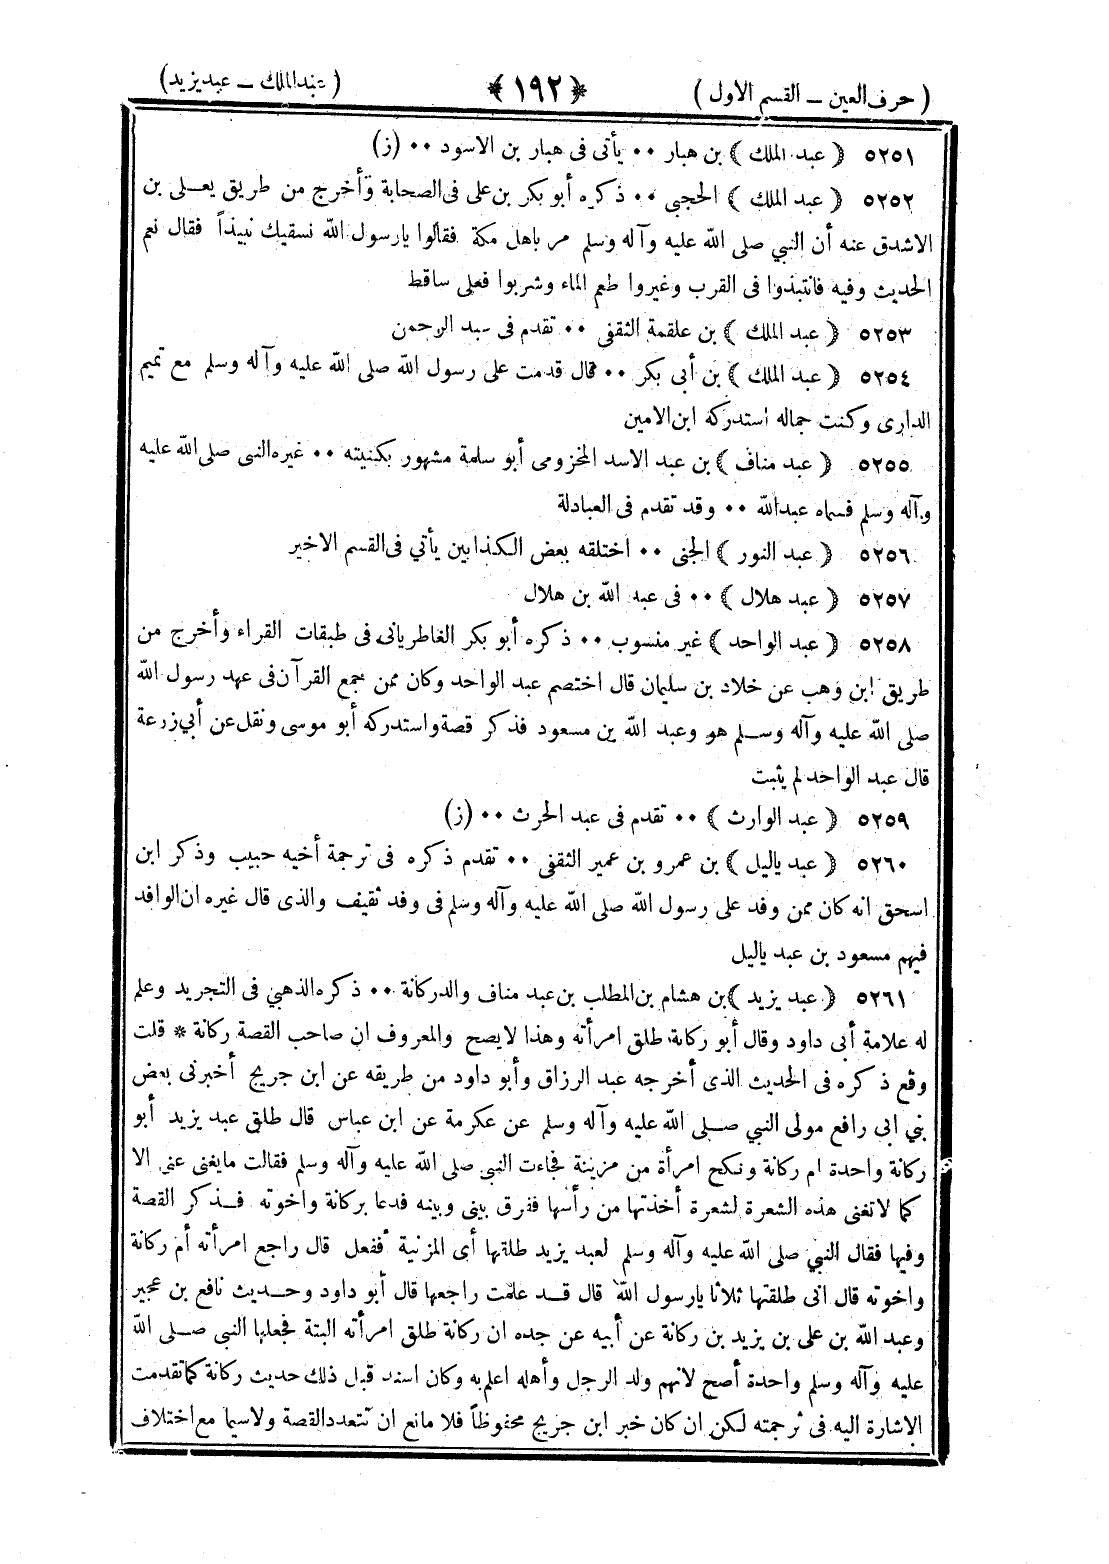 ( حرف العين ــ القسم الاول ) ﴿ ١٩٢ ﴾ ( عبد الملك ــ عبد يزيد )
٥٢٥١ ( عبد الملك ) بن هبار ٠٠ يأتى فى هبار بن الاسود ٠٠ (ز)
٥٢٥٢ ( عبد الملك ) الحجبى ٠٠ ذكره أبو بكر بن على فى الصحابة وأخرج من طريق يعــلى بن
الاشدق عنه أن النبي صلى الله عليه وآله وسلم مر باهل مكة فقالوا يارسول الله نسقيك نبيذاً فقال نعم
الحديث وفيه فانتبذوا فى القرب وغيروا طعم الماء وشربوا فعلى ساقط
٥٢٥٣ ( عبد الملك ) بن علقمة الثقفى ٠٠ تقدم فى عبد الرحمن
٥٢٥٤ ( عبد الملك ) بن أبى بكر ٠٠ قال قدمت على رسول الله صلى الله عليه وآله وسلم مع تميم
الدارى وكنت جماله استدركه ابن الامين
٥٢٥٥ ( عبد مناف ) بن عبد الاسد المخزومى أبو سلمة مشهور بكنيته ٠٠ غيره النبى صلى الله عليه
وآله وسلم فسماه عبدالله ٠٠ وقد تقدم فى العبادلة
٥٢٥٦ ( عبد النور ) الجنى ٠٠ اختلقه بعض الكذابين يأتي فى القسم الاخير
٥٢٥٧ ( عبد هلال ) ٠٠ فى عبد الله بن هلال
٥٢٥٨ ( عبد الواحد ) غير منسوب ٠٠ ذكره أبو بكر الغاطريانى فى طبقات القراء وأخرج من
طريق ابن وهب عن خلاد بن سليمان قال اختصم عبد الواحد وكان ممن جمع القرآن فى عهد رسول الله
صلى الله عليه وآله وســلم هو وعبد الله بن مسعود فذكر قصة واستدركه أبو موسى ونقل عن أبي زرعة
قال عبد الواحد لم يثبت
٥٢٥٩ ( عبد الوارث ) ٠٠ تقدم فى عبد الحرث ٠٠ (ز)
٥٢٦٠ ( عبد ياليل ) بن عمرو بن عمير الثقفى ٠٠ تقدم ذكره فى ترجمة أخيه حبيب وذكر ابن
اسحق انه كان ممن وفد على رسول الله صلى الله عليه وآله وسلم فى وفد ثقيف والذى قال غيره ان الوافد
فيهم مسعود بن عبد ياليل
٥٢٦١ ( عبد يزيد ) بن هشام بن المطلب بن عبد مناف والد ركانة ٠٠ ذكره الذهبي فى التجريد وعلم
له علامة أبى داود وقال أبو ركانة طلق امرأته وهذا لا يصح والمعروف ان صاحب القصة ركانة * قلت
وقع ذكره فى الحديث الذى أخرجه عبد الرزاق وأبو داود من طريقه عن ابن جريج أخبرنى بعض
بني ابى رافع مولى النبي صــلى الله عليه وآله وسلم عن عكرمة عن ابن عباس قال طلق عبد يزيد أبو
ركانة واحدة ام ركانة ونكح امرأة من مزينة فجاءت النبي صلى الله عليه وآله وسلم فقالت مايغنى عنى الا
كما لاتغنى هذه الشعرة لشعرة أخذتها من رأسها ففرق بينى وبينه فدعا بركانة واخوته فــذكر القصة
وفيها فقال النبي صلى الله عليه وآله وسلم لعبد يزيد طلقها أى المزنية ففعل قال راجع امرأته أم ركانة
واخوته قال انى طلقتها ثلاثا يارسول الله قال قــد علمت راجعها قال أبو داود وحــديث نافع بن عجير
وعبد الله بن على بن يزيد بن ركانة عن أبيه عن جده ان ركانة طلق امرأته البتة فجعلها النبي صــلى الله
عليه وآله وسلم واحدة أصح لانهم ولد الرجل وأهله اعلم به وكان اسند قبل ذلك حديث ركانة كما تقدمت
الاشارة اليه فى ترجمته لكن ان كان خبر ابن جريج محفوظاً فلا مانع ان تتعدد القصة ولاسيما مع اختلاف